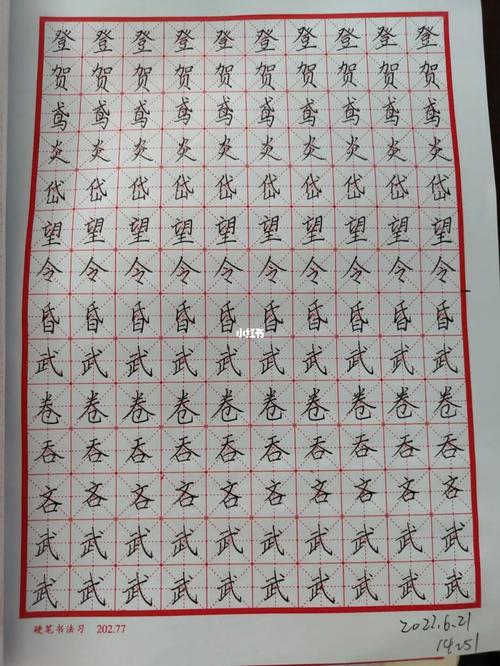 登登登登登登登登登登
贺贺贺贺贺贺贺贺贺贺
鸢鸢鸢鸢鸢鸢鸢鸢鸢鸢
炎炎炎炎炎炎炎炎炎炎
岱岱岱岱岱岱岱岱岱岱
望望望望望望望望望望
令令令令令令令令令令
昏昏昏昏昏昏昏昏昏昏
小红书
武武武武武武武武武武
卷卷卷卷卷卷卷卷卷卷
吞吞吞吞吞吞吞吞吞吞
吝吝吝吝吝吝吝吝吝吝
武武武武武武武武武武
武武武武武武武武武武
硬笔书法习 202.77
2022.6.21
14:51